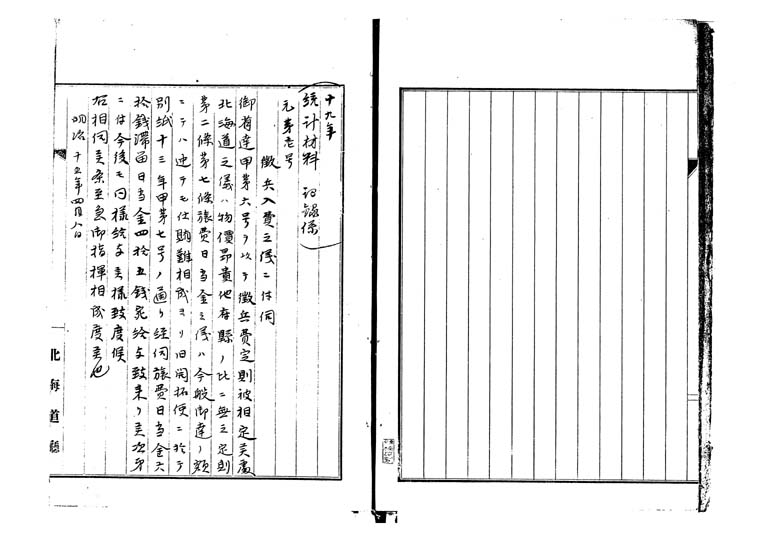 十九年
統計材料 記録係
元第老号
徴兵入費之儀ニ付伺
御省達甲第六号ヲ以テ徴兵費定則被相定候處
北海道之儀ハ物價昂貴他府縣ノ比ニ無之定則
第二條第七條旅費日当金之儀ハ今般御達ノ額
ニテハ迚テモ仕賄難相成ヨリ旧開拓使ニ於テ
別紙十三年甲第七号ノ通リ経伺旅費日当金六
拾銭滞留日当金四拾五銭宛給与致来リ候次第
ニ付今後モ同様給与候様致度候
右相伺候条至急御指揮相成度候也
明治十五年四月八日
北海道廳